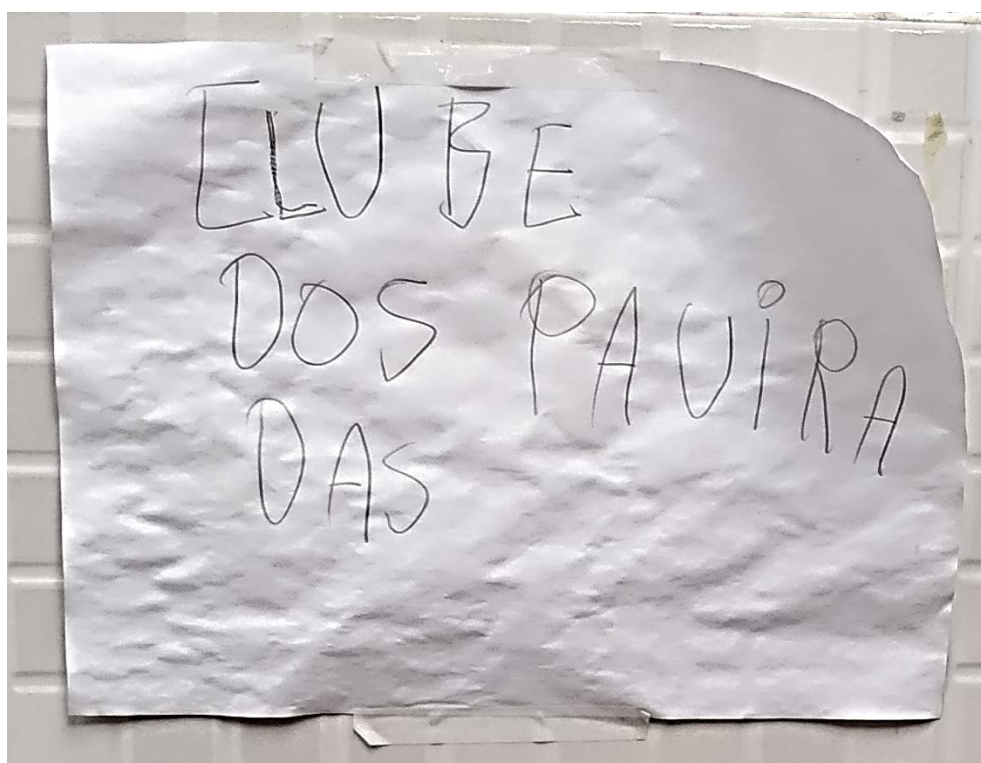 ELUBE
DOS PAUiRA
DAS